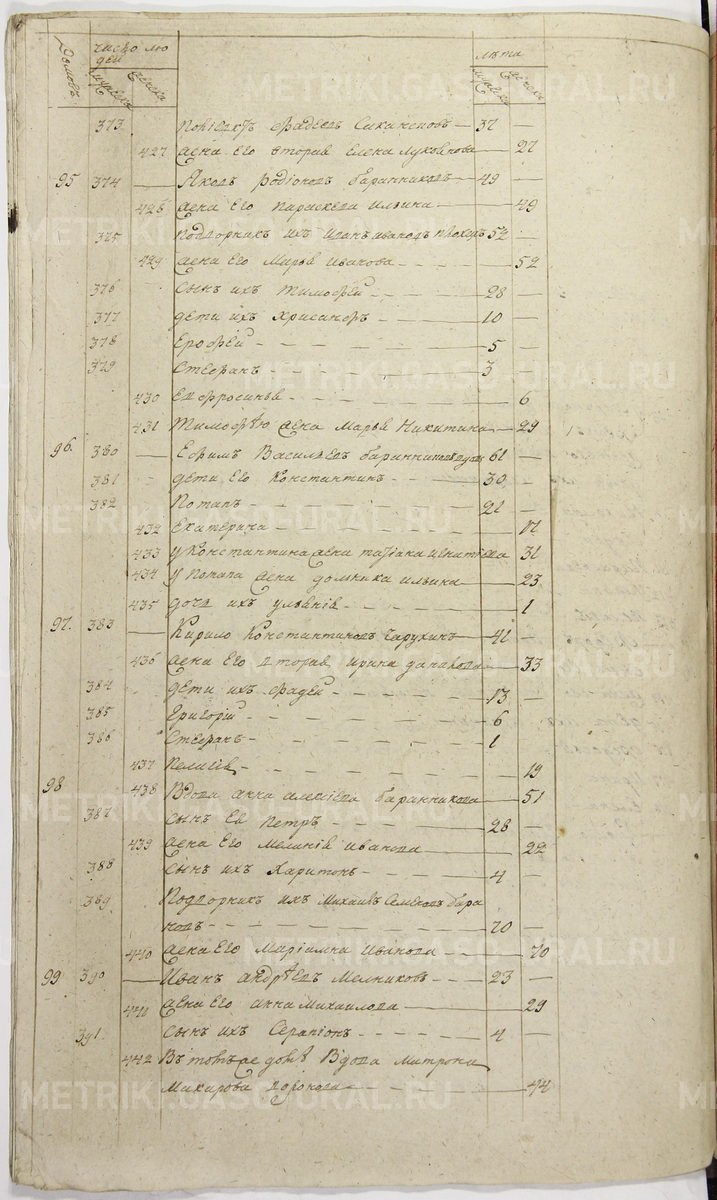 Домовъ число лю дей лѣта
мужеска женска мужеска женска
373 Фадеевъ 37 —
427 жена его вторая Елена 27
95 374 — Яковъ Родіоновъ Баранниковъ 49 —
428 жена его Параскева Ильина — 49
375 Подворникъ ихъ Иванъ Ивановъ 52 —
429 жена его Марья Иванова — 52
376 сынъ ихъ Тимофей — 28 —
377 дети ихъ Хрисанфъ — 10 —
378 Ерофей — 5 —
379 Стефанъ — 3 —
430 Ефросинья — 6
431 Тимофѣю жена Марья Никитина — 29
96. 380 — Ефимъ Васильевъ Баранниковъ 61 —
381 дети его Константинъ — 30 —
382 Потапъ — 21 —
432 Екатерина — 17
433 у Константина жена Татіана Игнатьева 31
434 у Потапа жена Домника Ильина — 23
435 дочь ихъ Ульянія — 1
97. 383 — Кирило Константиновъ Чарухинъ — 41 —
436 жена его вторая Ирина 33
384 дети ихъ Фадей — 13 —
385 Григорій — 6 —
386 Стефанъ — 1 —
437 Пелагія — 19
98 438 Вдова Анна Алексіева Баранникова — 51
387 сынъ ея Петръ — 28 —
439 жена его Меланія Иванова — 22
388 сынъ ихъ Харитонъ — 4 —
389 Подворникъ ихъ Михаилъ Семеновъ Бара
новъ — 70 —
440 жена его Маріамна Иванова — 70
99 390 — Иванъ Андрѣевъ Мелниковъ — 23 —
441 жена его Анна Михаилова — 29
391. сынъ ихъ Серапіонъ — 4 —
442 Въ томъ же домѣ Вдова Матрона
Макарова — 44
METRIKI.GASO-URAL.RU